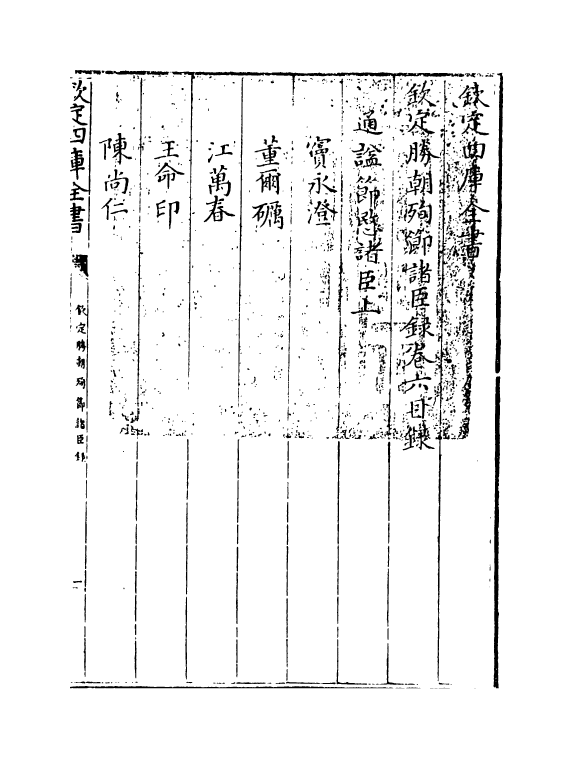 欽定四庫全書
欽定勝朝殉節諸臣録卷六目録
通謚節愍諸臣上
竇永澄
董爾礪
江萬春
王命印
陳尚仁
欽定四庫全書
欽定勝朝殉節諸臣録
一